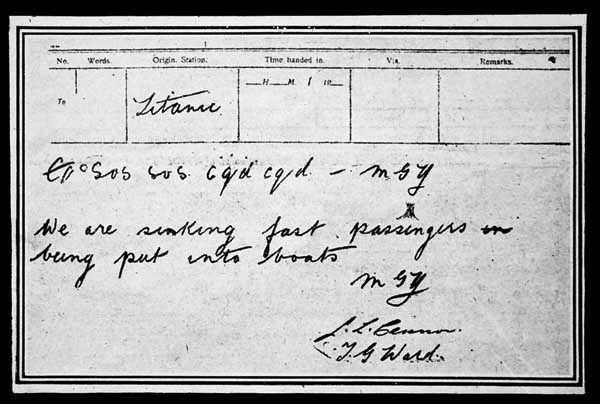 No. Words. Origin. Station. Time handed in. Via. Remarks.
H M 19
To
Titanic
SOS SOS cqd cqd – MGY
We are sinking fast passengers
being put into boats
MGY
T G Ward.